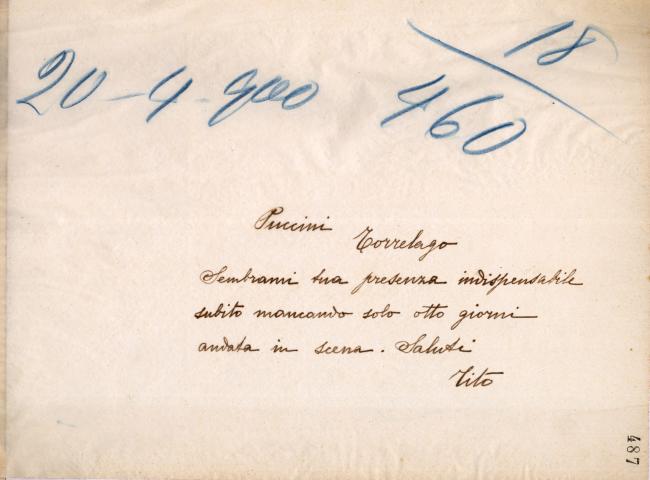 18
20-4-900 460
Puccini
Torrelago
Sembrami tua presenza indispensabile
subito mancando solo otto giorni
andata in scena. Saluti
Tito
487